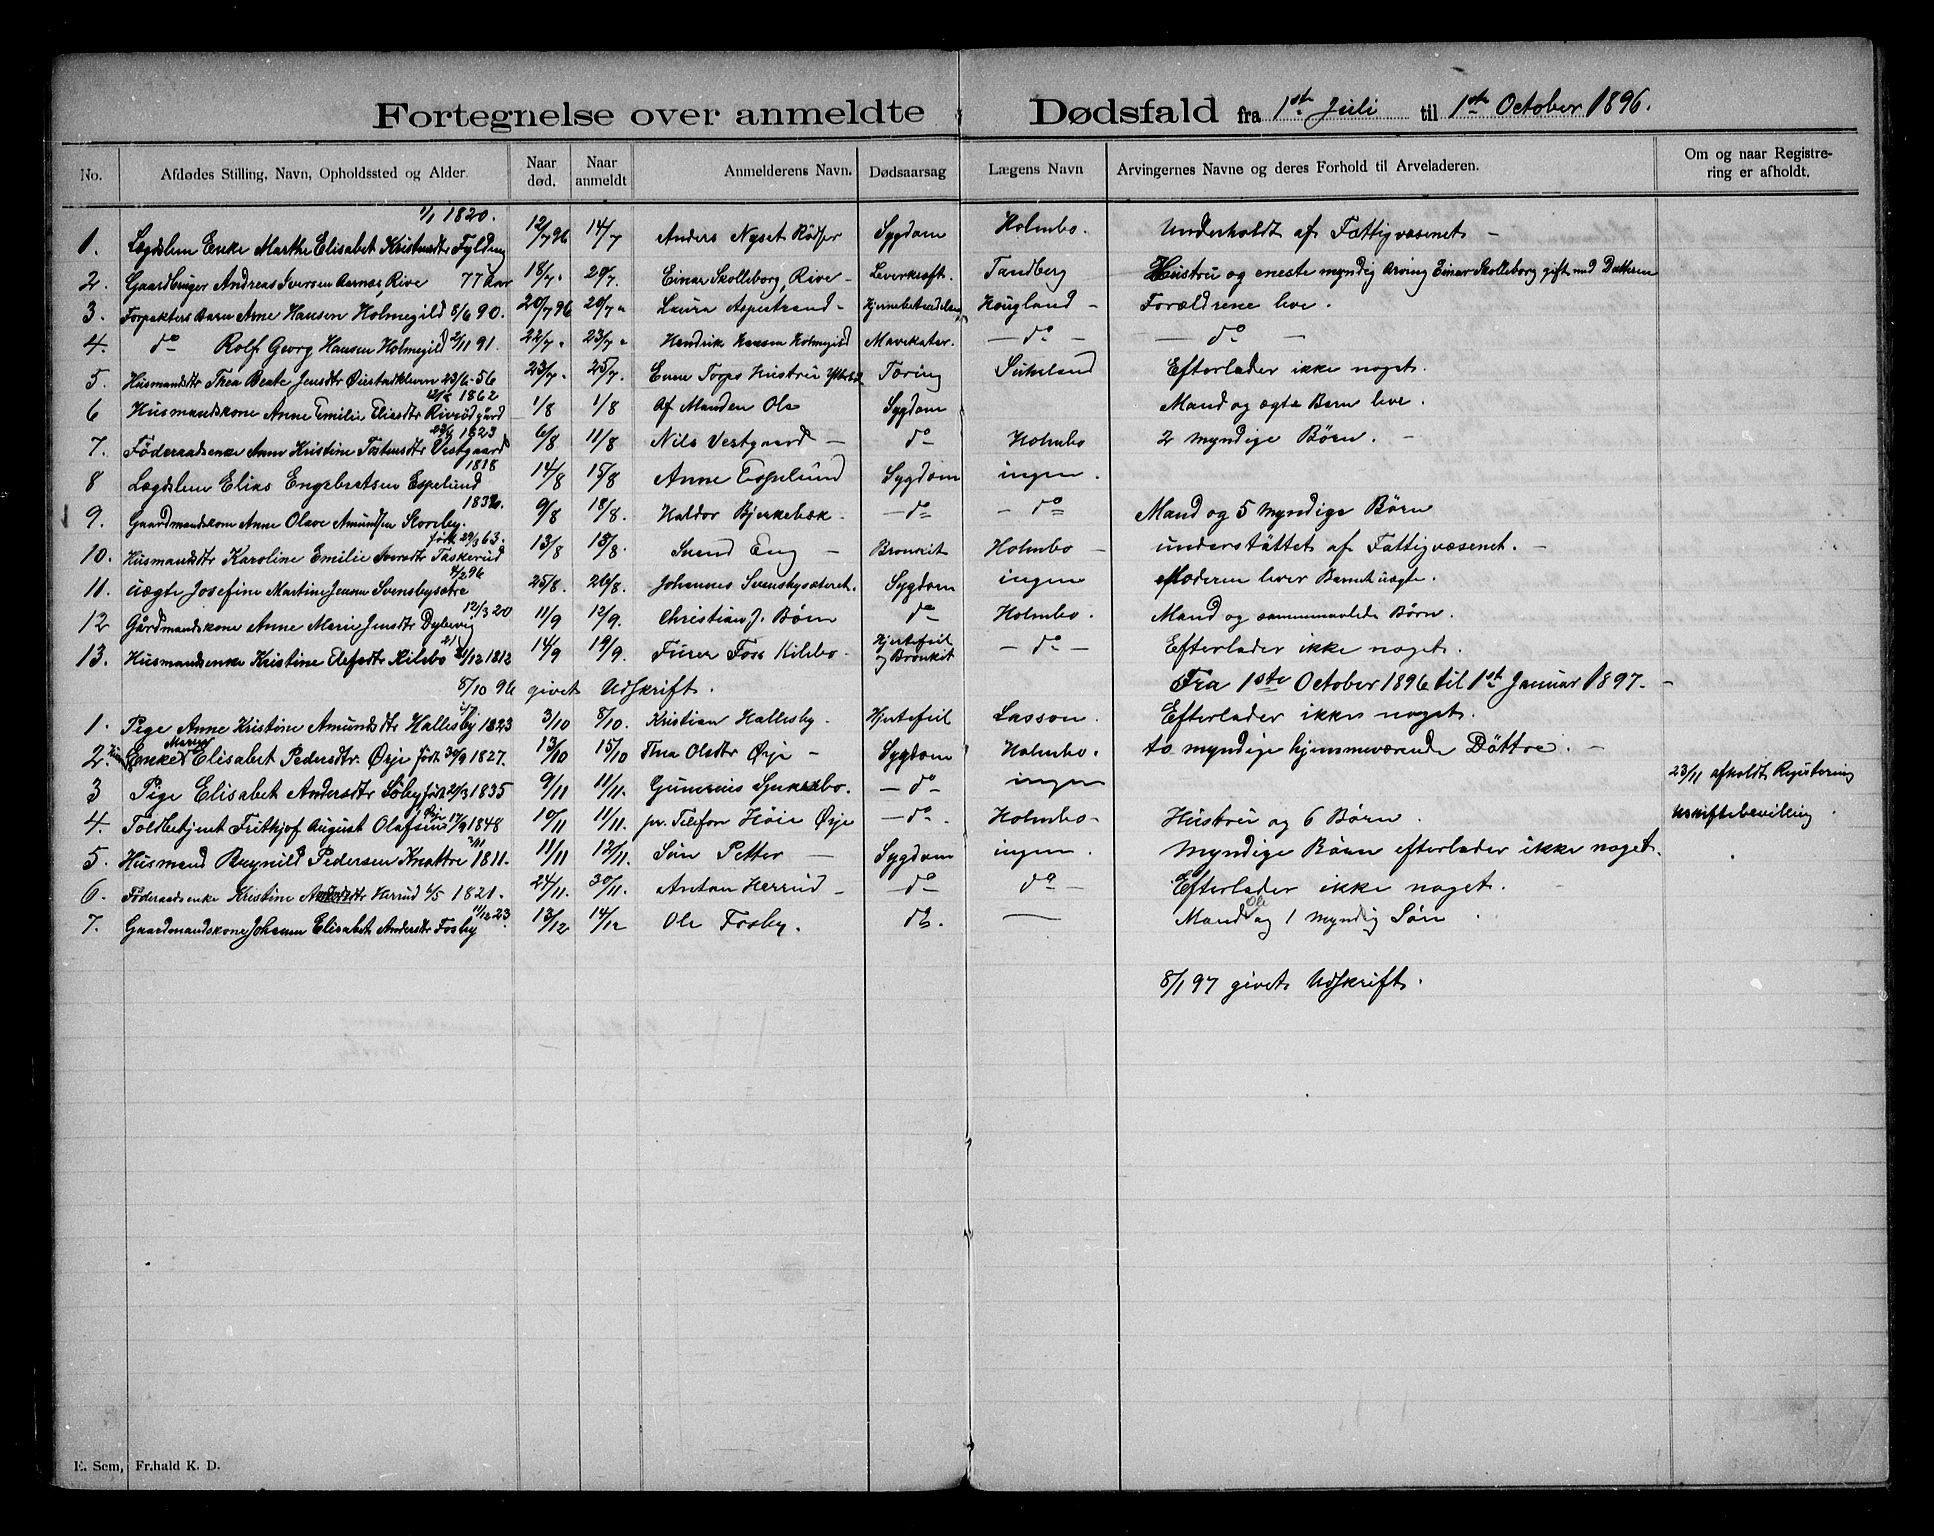 Fortegnelse over anmeldte Dødsfald fra 1ste Juli til 1ste October 1896.
No. Afdødes Stilling, Navn, Opholdssted og Alder. Naar død. Naar anmeldt Anmelderens Navn. Dødsaarsag Lægens Navn Arvingernes Navne og deres Forhold til Arveladeren. Om og naar Registrering er afholdt.
1/1 1820.
1. Lægdslem Enke Marthe Elisabet Kristensdtr Fylding 12/7 96 14/7 Anders Nyset Rødsør Sygdom Holmbo. Underholdt af Fattigvæsenet -
2. Gaardbruger Andreas Iversen Aarnæs, Rive 77 Aar 18/7. 20/7. Einar Skolleborg, Rive - Leverkræft. Tandberg Hustru og eneste myndig Arving Einar Skolleborg gift med Datteren
3. Forpakters Barn Arne Hansen Holmegild 8/6 90. 20/7 96 20/7 " Laura Aspestrand - Hjernebetændelse Hougland - Forældrene leve.
4. do Rolf Georg Hansen Holmegild 2/11 91. 22/7 " 23/7 " Hendrik Hansen Holmegild Mavekatar. - do - - do -
5. Husmandsdtr Thea Beate Jensdtr Øiestadkleven 23/6 - 56 23/7. 25/7. Even Torps Hustru Tæring Efterlader ikke noget.
1862
6 Husmandskone Anne Emilie Eliasdtr Rivsødgård 1/8 1/8 Af Manden Ole Sygdom Mand og ægte Børn leve.
1823
7. Föderaadsenke Anne Kristine Tostensdtr Vestgaard 6/8 11/8 Nils Vestgaard - do Holmbo 2 myndige Børn. -
1818
8 Lægdslem Elias Engebretsen Espelund 14/8 15/8 Anne Espelund Sygdom ingen.
1832.
9. Gaardmandskone Anne Olave Amundsen Skovby. 9/8 18/8. Haldor Bjerkebæk. - do - - do Mand og 5 myndige Børn
födt 29/3 63.
10. Husmandsdtr Karoline Emilie Iversdtr Taskerud 13/8 18/8. Svend Eng - Bronkit Holmbo - understöttet af Fattigvæsenet. -
4/2 96
11. Uægte Josefine Martine Jensen Svensbysætre 25/8. 26/8. Johannes Svensbysæteret. Sygdom ingen Moderen lever Barnet uægte.
12/3 20
12 Gårdmandskone Anne Marie Jensdtr Dylevig 11/9 12/9. Christian J. Bøen do Holmbo. Mand og sammenavlede Børn.
13. Husmandsenke Kristine Elefsdtr Kilebo 21/12 1812 14/9 19/9. Furer Foss Kilebo. Hjertefeil og Bronkit - do - Efterlader ikke noget.
8/10 96 givet Udskrift. Fra 1ste October 1896 til 1st Januar 1897. -
1. Pige Anne Kristine Amundsdtr Hallesby 1823 3/10 8/10. Kristian Hallesby. Hjertefeil Lasson. Efterlader ikke noget.
2. Enke Maren Elisabet Pedersdtr. Ørje födt 30/9 1827. 13/10 15/10 Thea Olsdtr Ørje - Sygdom Holmbo. to myndige hjemmeværende Döttre. -
3 Pige Elisabet Andersdtr Söby födt 20/3 1835 9/11 11/11. Gunerius - do - ingen
23/11 afholdt Registering
4. Toldbetjent Frithjof August Olafsen Ørje 17/9 1848 10/11 11/11. pr. Telefon Høie Ørje - do - Holmbo - Hustru og 6 Børn. Uskiftebevilling.
5. Husmand Brynild Pedersen Knattre 1811. 11/11 12/11. Søn Petter - Sygdom ingen. Myndige Børn efterlader ikke noget.
6. Föderaadsenke Kristine Andersdtr Herrud 6/5 1821. 24/11. 30/11. Anton Herrud - - do - do - Efterlader ikke noget. -
11/12 23.
7. Gaardmandskone Johanne Elisabet Andersdtr Fosby 13/12 14/12 Ole Fosby. do. - Mand Ole og 1 myndig Søn.
8/1 97 givet Udskrift.
E. Sem, Fr.hald K. D.